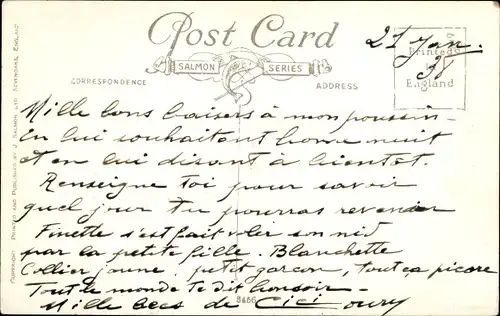 Post Card
SALMON SERIES
CORRESPONDENCE
ADDRESS
21 Jan.
38
Printed
in
England
COPYRIGHT PRINTED AND PUBLISHED BY J. SALMON LTD SEVENOAKS, ENGLAND
Mille bons baisers à mon poussin
en lui souhaitant bonne nuit
et en lui disant à bientot.
Renseigne toi pour savoir
quel jour tu pourras revenir
Finette s'est fait voler son nid
par la petite fille. Blanchette
Collier jaune, petit garçon, tout ça picore
Tout le monde te dit bonsoir -
Mille becs de Cici
3466